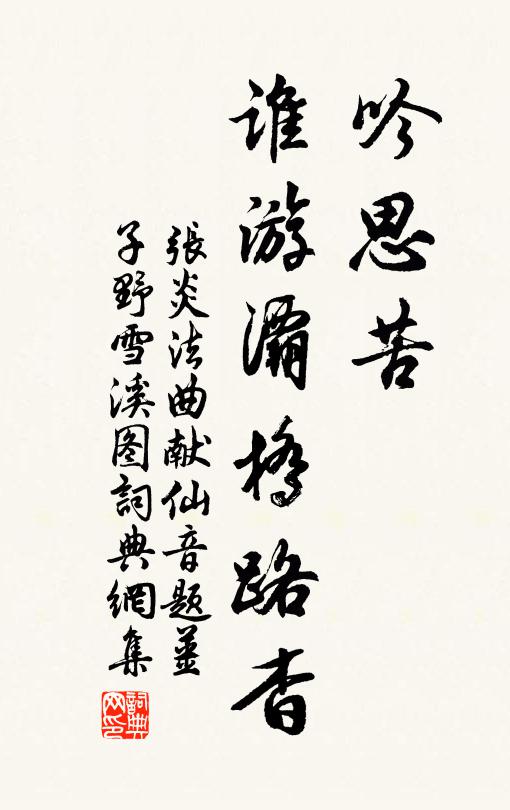 吟思苦
谁游灞橋路杳
張炎法曲献仙音题薑
子野雪溪图詞典網集
詞典网印